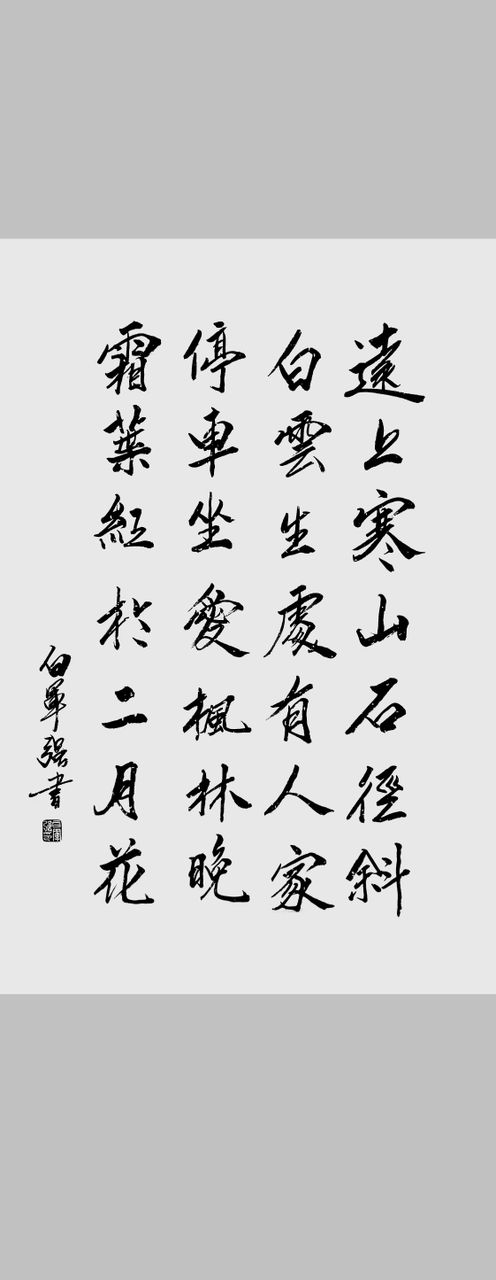 遠上寒山石徑斜
白雲生處有人家
停車坐愛楓林晚
霜葉紅於二月花
白軍強書